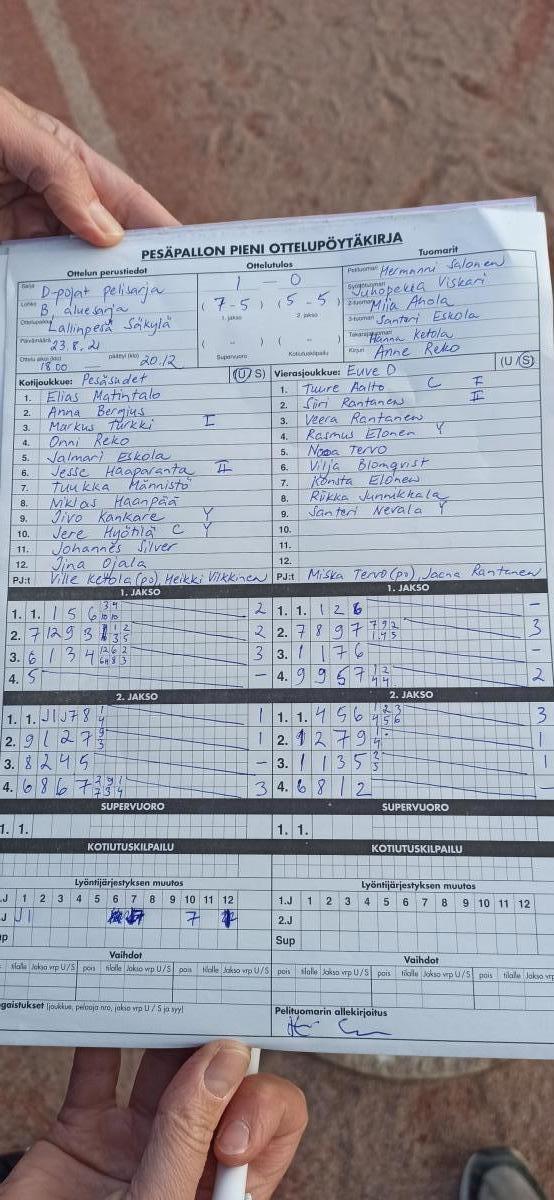 PESÄPALLON PIENI OTTELUPÖYTÄKIRJA
Ottelun perustiedot Ottelutulos Tuomarit
Sarja D-pojat pelisarja
Lohko B aluesarja
Lallinpesä Säkylä
Päivämäärä 23.8.21
Ottelu alkoi (klo) 18.00 päättyi (klo) 20.12
1 – 0
( 7-5 ) ( 5 - 5 )
1. jakso 2. jakso
( -- ) ( -- )
Supervuoro Kotiutuskilpailu
Pelituomari Hermanni Salonen
Syöttötuomari Juhopekka Viskari
2-tuomari Miia Ahola
3-tuomari Santeri Eskola
Takarajatuomari Hanna Ketola
Kirjuri Anne Reko
Kotijoukkue: Pesäsudet (U/S)
1. Elias Matintalo
2. Anna Bergius
3. Markus Turkki I
4. Onni Reko
5. Jalmari Eskola
6. Jesse Haaparanta II
7. Tuukka Männistö
8. Niklas Haanpää
9. Jivo Kankare Y
10. Jere Hyötilä C Y
11. Johannes Silver
12. Jina Ojala
PJ:t Ville Ketola (po), Heikki Vilkkinen
Vierasjoukkue: Euve D (U/S)
1. Tuure Aalto C I
2. Siiri Rantanen II
3. Veera Rantanen
4. Rasmus Elonen Y
5. Nooa Tervo
6. Vilja Blomqvist
7. Konsta Elonen
8. Riikka Junnukkala
9. Santeri Nevala Y
10.
11.
12.
PJ:t Miska Tervo (po), Jaana Rantanen
1. JAKSO 1. JAKSO
1. 1. 1 5 6 2
2. 7 12 9 3 2
3. 6 1 3 4 3
4. 5 –
1. 1. 1 2 6 –
2. 7 8 9 7 3
3. 1 1 7 6 –
4. 9 9 5 7 2
2. JAKSO 2. JAKSO
1. 1. J1 J7 8 1
2. 9 1 2 7 1
3. 8 2 4 5 –
4. 6 8 6 7 3
1. 1. 4 5 6 3
2. 1 2 7 9 1
3. 1 1 3 5 1
4. 6 8 1 2 –
SUPERVUORO SUPERVUORO
1. 1. 1. 1.
KOTIUTUSKILPAILU KOTIUTUSKILPAILU
Lyöntijärjestyksen muutos Lyöntijärjestyksen muutos
.J 1 2 3 4 5 6 7 8 9 10 11 12 1.J 1 2 3 4 5 6 7 8 9 10 11 12
J J1 7 2.J
p Sup
Vaihdot Vaihdot
tilalle Jakso vrp U/S pois tilalle Jakso vrp U/S pois tilalle Jakso vrp U/S pois tilalle Jakso vrp U/S pois tilalle Jakso vrp U/S pois tilalle Jakso vrp
gaistukset (joukkue, pelaaja nro, jakso vrp U / S ja syy) Pelituomarin allekirjoitus